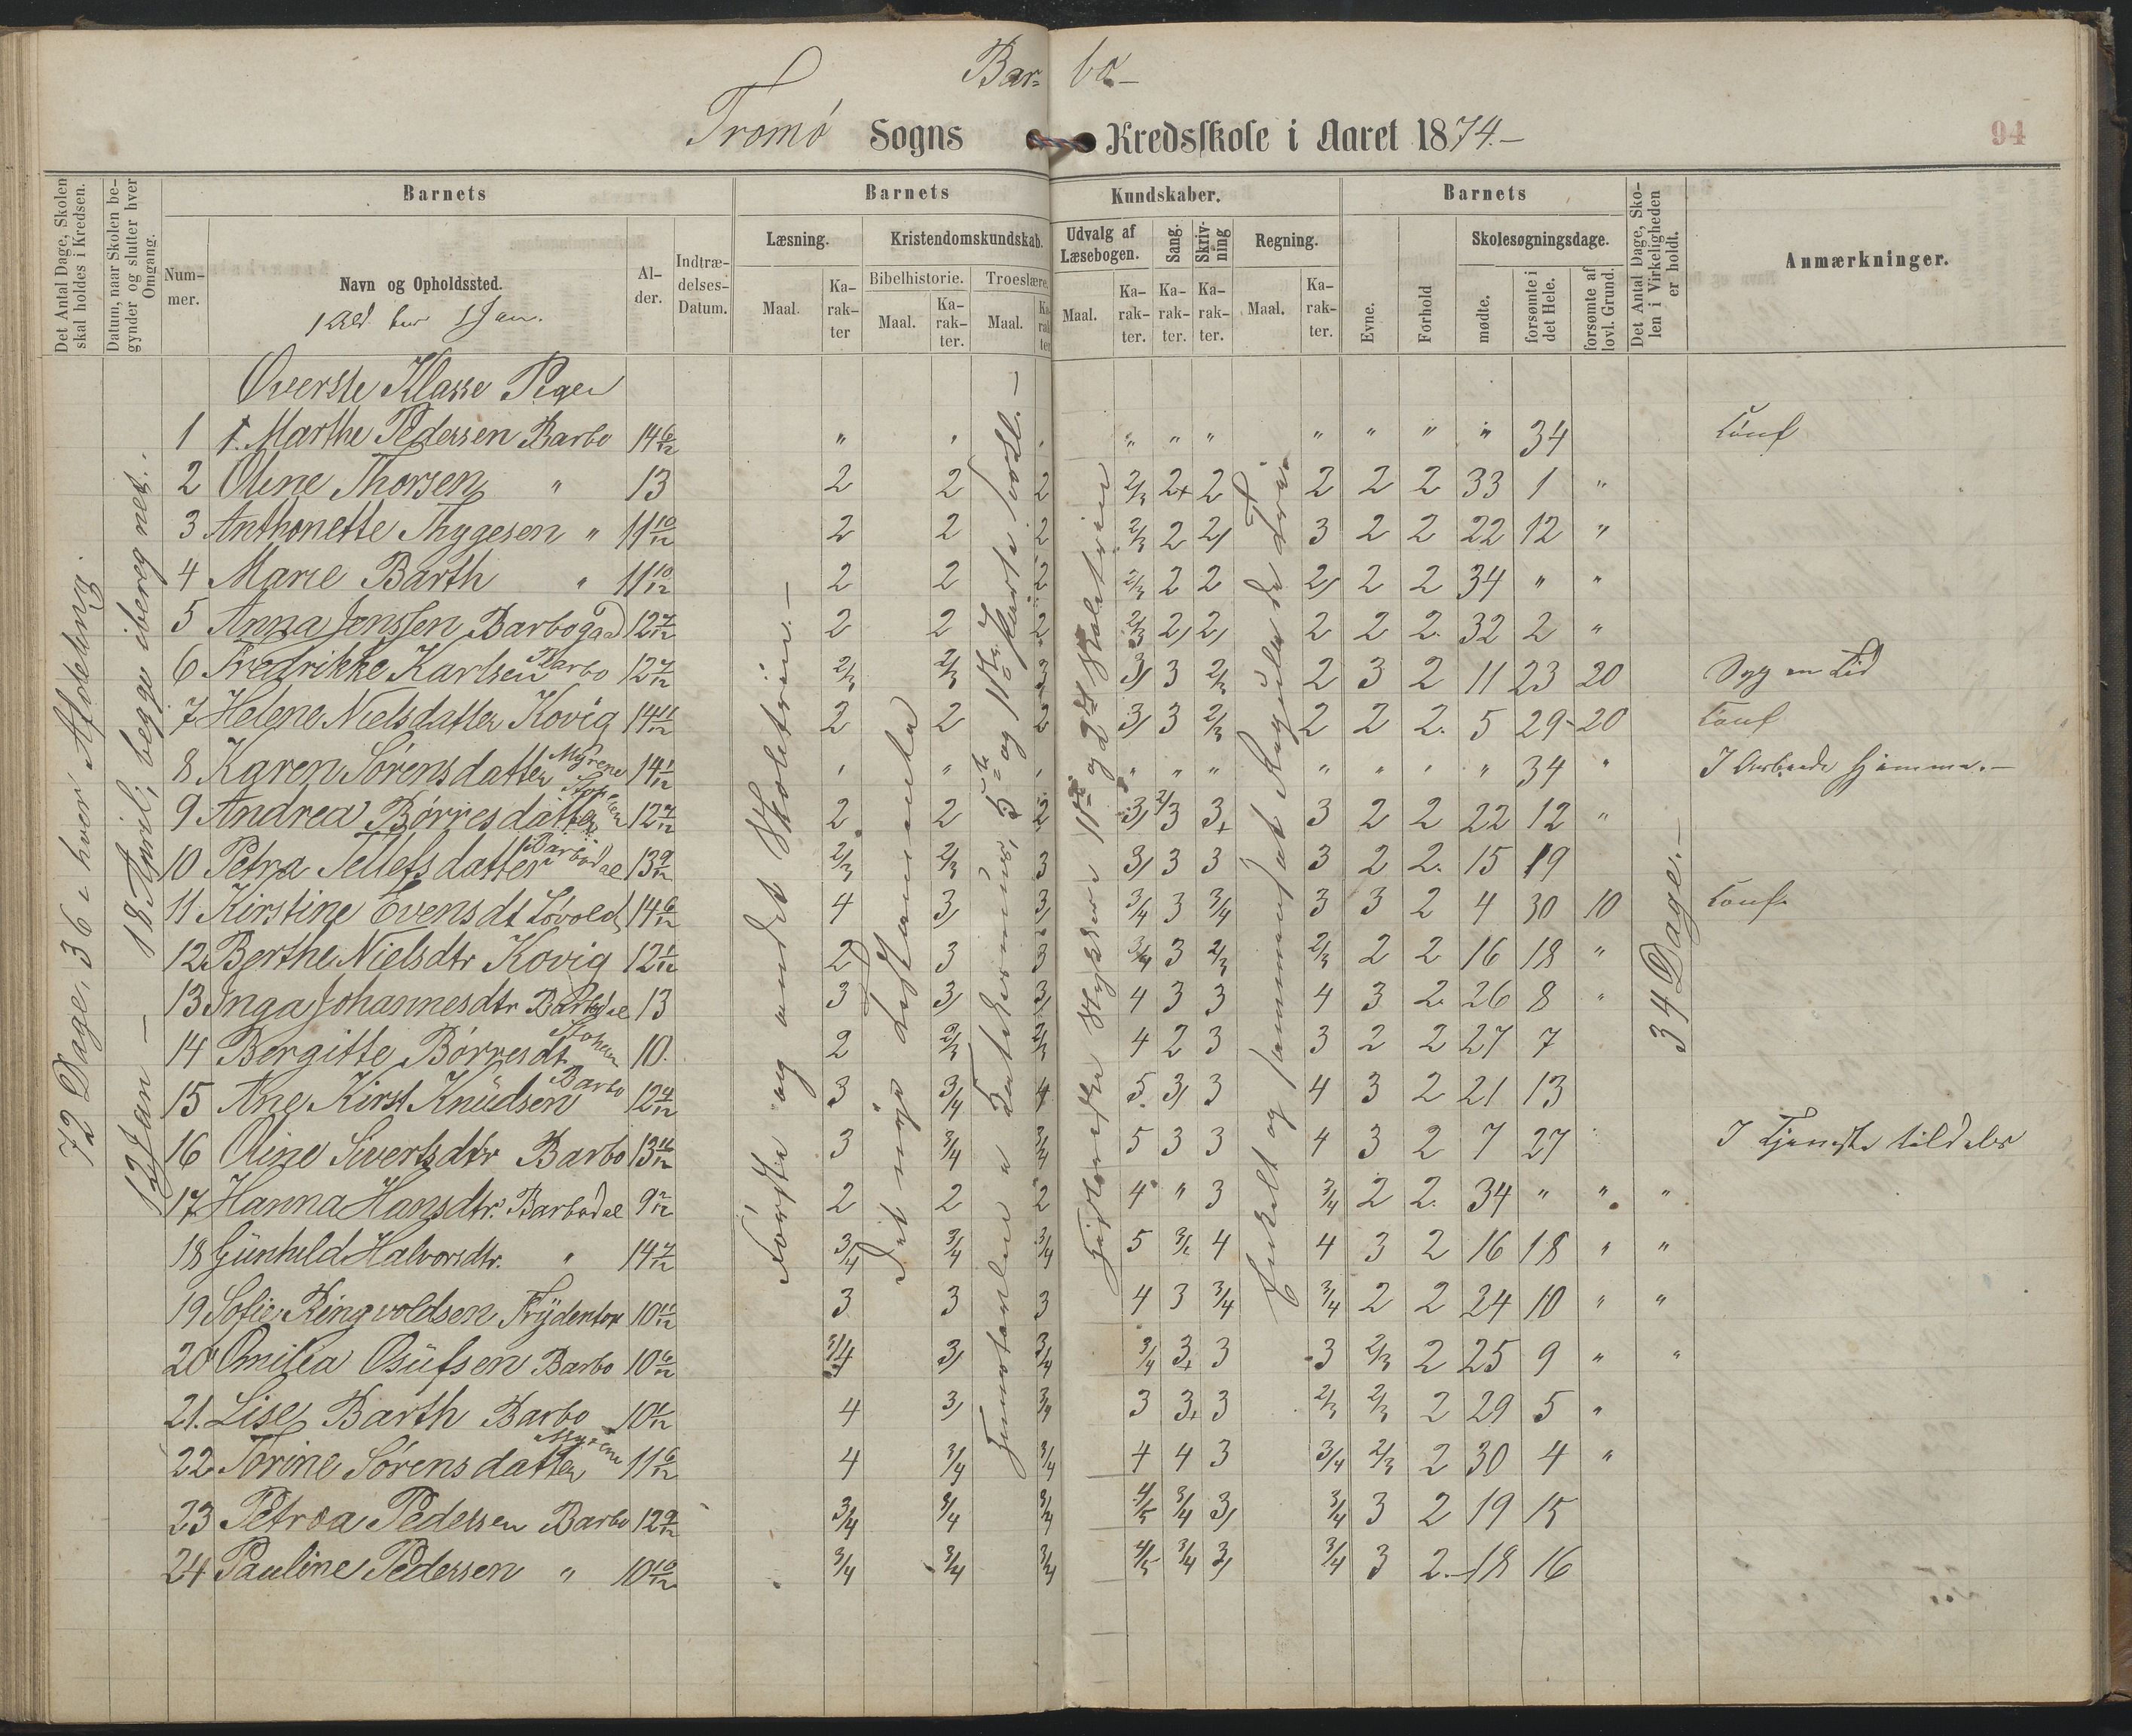 Bar- bo-
Tromø Sogns Kredsskole i Aaret 1874.-
94
Det Antal Dage, Skolen skal holdes i Kredsen.
Datum, naar Skolen begynder og slutter hver Omgang.
Barnets
Nummer.
Navn og Opholdssted.
Alder.
Indtrædelses-Datum.
Barnets Kundskaber.
Læsning.
Maal.
Karakter
Kristendomskundskab.
Bibelhistorie.
Maal.
Karakter.
Troeslære.
Maal.
Karakter
Udvalg af Læsebogen.
Maal.
Karakter.
Sang.
Karakter.
Skrivning
Karakter.
Regning.
Maal.
Karakter.
Barnets
Evne.
Forhold
Skolesøgningsdage.
mødte.
forsømte i det Hele.
forsømte af lovl. Grund.
Det Antal Dage, Skolen i Virkeligheden er holdt.
Anmærkninger.
72 Dage, 36 i hver Afdeling.
12 Jan - 18 April, begge ibereg net.
Første og andet Skoletrin.-
Det nye Testamente
1ste og 2det Skoletrin
34 Dage.-
Øverste Klasse Piger
1 1. Marthe Pedersen Barbo 14 6/12 " " " " " " " " " " 34 Conf
2 Oline Thorsen " 13 2 2 2 2/3 2+ 2 2 2 2 33 1 "
3 Anthonette Thygesen " 11 10/12 2 2 2 2/3 2 2/ 3 2 2 22 12 "
4 Marie Barth " 11 10/12 2 2 2 2/3 2 2 2/ 2 2 34 " "
5 Anna Jenssen Barbogad 12 7/12 2 2 2 2/3 2/ 2/ 2 2 2. 32 2 "
6 Fredrikke Karlsen Barbo 12 7/12 2/3 2/3 3 3/ 3 2/3 2 3 2 11 23 20 Syg en Tid
7 Helene Nielsdatter Kovig 14 11/12 2 2 2 3/ 3 2/3 2 2 2. 5 29 20 Conf
8 Karen Sørensdatter Myrene 14 1/12 " " " " " " " " " " 34 " I Arbeide hjemme.-
9 Andrea Børresdatter 12 7/12 2 2 2 3/ 2/3 3+ 3 2 2 22 12 "
10 Petra Tellefsdatter Barbodal 13 9/12 2/3 2/3 3 3/ 3 3 3 2 2. 15 19
11 Kirstine Evensdt Løvold 14 6/12 4 3/ 3/ 3/4 3 3/4 3 3 2 4 30 10 Conf.
12 Berthe Nielsdtr Kovig 12 1/12 2 3 3 3/4 3 2/3 2/3 2 2 16 18 "
13 Inga Johannesdtr Barbodal 13 3 3/ 3/ 4 3 3 4 3 2. 26 8 "
14 Bergitte Børresdt 10. 2 2/3 2/3 4 2 3 3 2 2 27 7
15 Ane Kirst Knudsen Barbo 12 9/12 3 3/4 4 5 3/ 3 4 3 2 21 13
16 Oline Sivertsdtr Barbo 13 11/12 3 3/4 3/4 5 3 3 4 3 2 7 27 I Tjeneste tildels
17 Hanna Hansdtr. Barbodal 9 2/12 2 2 2 4 " 3 3/4 2 2. 34 " " "
18 Gunhild Halvorsdtr. " 14 7/12 3/4 3/4 3/4 5 3/4 4 4 3 2 16 18 " "
19 Sofie Ringvoldsen Frydenlon 10 11/12 3 3 3 4 3 3/4 3/4 2 2 24 10 " "
20 Omilia Osufsen Barbo 10 6/12 3/4 3/ 3/4 3/4 3+ 3 3 2/3 2 25 9 " "
21. Lise Barth Barbo 10 1/12 4 3/ 3/4 3 3+ 3 2/3 2/3 2 29 5 "
22 Torine Sørensdatter Myrene 11 6/12 4 3/4 3/4 4 4 3 3/4 2/3 2 30 4 "
23 Petrea Pedersen Barbo 12 9/12 3/4 3/4 3/4 4/5 3/4 3/ 3/4 3 2 19 15
24 Pauline Pedersen " 10 10/12 3/4 3/4 3/4 4/5 3/4 3/ 3/4 3 2. 18 16